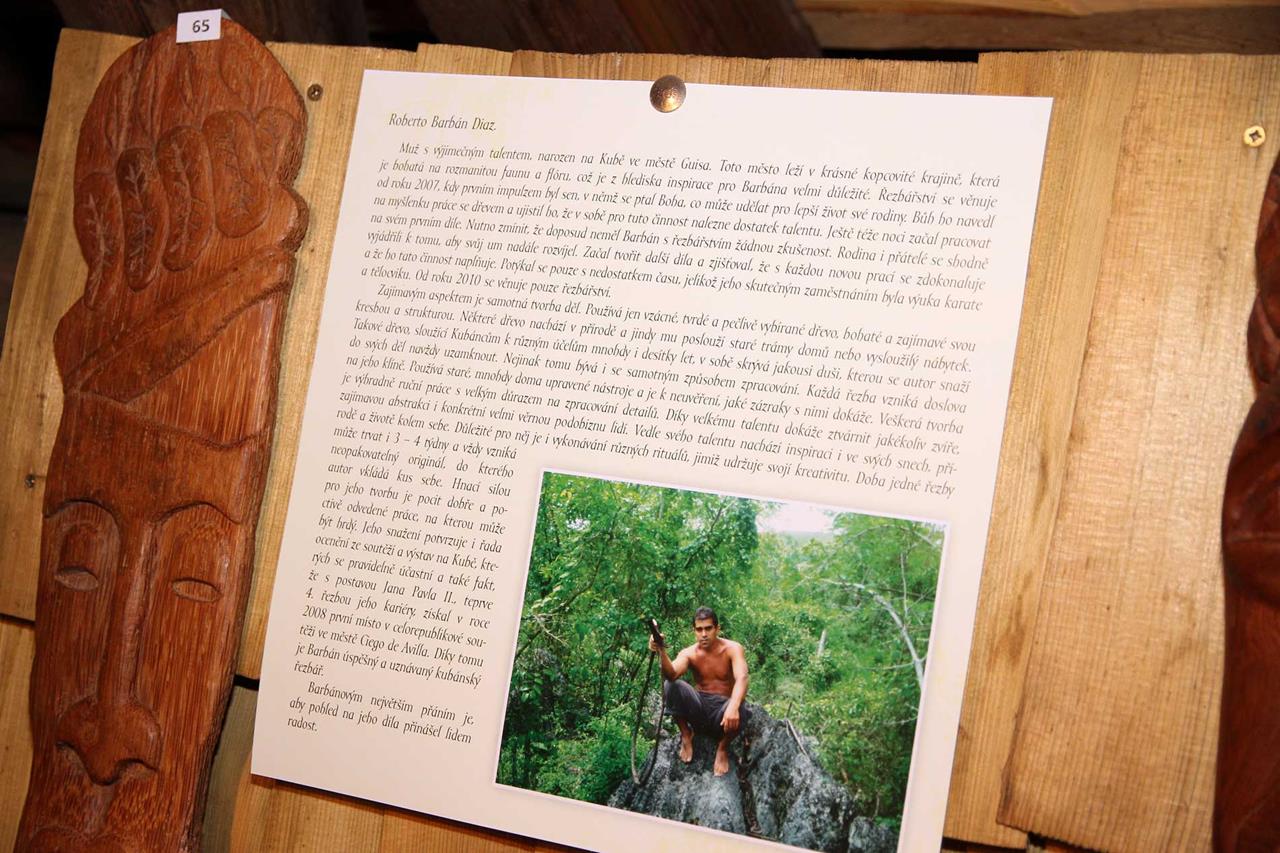 65
Roberto Barbán Diaz.
Muž s výjimečným talentem, narozen na Kubě ve městě Guisa. Toto město leží v krásné kopcovité krajině, která
je bohatá na rozmanitou faunu a flóru, což je z hlediska inspirace pro Barbána velmi důležité. Řezbářství se věnuje
od roku 2007, kdy prvním impulzem byl sen, v němž se ptal Boha, co může udělat pro lepší život své rodiny. Bůh ho navedl
na myšlenku práce se dřevem a ujistil ho, že v sobě pro tuto činnost nalezne dostatek talentu. Ještě téže noci začal pracovat
na svém prvním díle. Nutno zmínit, že doposud neměl Barbán s řezbářstvím žádnou zkušenost. Rodina i přátelé se shodně
vyjádřili k tomu, aby svůj um nadále rozvíjel. Začal tvořit další díla a zjišťoval, že s každou novou prací se zdokonaluje
a že ho tato činnost naplňuje. Potýkal se pouze s nedostatkem času, jelikož jeho skutečným zaměstnáním byla výuka karate
a tělocviku. Od roku 2010 se věnuje pouze řezbářství.
Zajímavým aspektem je samotná tvorba děl. Používá jen vzácné, tvrdé a pečlivě vybírané dřevo, bohaté a zajímavé svou
kresbou a strukturou. Některé dřevo nachází v přírodě a jindy mu poslouží staré trámy domů nebo vysloužilý nábytek.
Takové dřevo, sloužící Kubáncům k různým účelům mnohdy i desítky let, v sobě skrývá jakousi duši, kterou se autor snaží
do svých děl navždy uzamknout. Nejinak tomu bývá i se samotným způsobem zpracování. Každá řezba vzniká doslova
na jeho klíně. Používá staré, mnohdy doma upravené nástroje a je k neuvěření, jaké zázraky s nimi dokáže. Veškerá tvorba
je výhradně ruční práce s velkým důrazem na zpracování detailů. Díky velkému talentu dokáže ztvárnit jakékoliv zvíře,
zajímavou abstrakci i konkrétní velmi věrnou podobiznu lidí. Vedle svého talentu nachází inspiraci i ve svých snech, pří-
rodě a životě kolem sebe. Důležité pro něj je i vykonávání různých rituálů, jimiž udržuje svojí kreativitu. Doba jedné řezby
může trvat i 3 – 4 týdny a vždy vzniká
neopakovatelný originál, do kterého
autor vkládá kus sebe. Hnací silou
pro jeho tvorbu je pocit dobře a po-
ctivě odvedené práce, na kterou může
být hrdý. Jeho snažení potvrzuje i řada
ocenění ze soutěží a výstav na Kubě, kte-
rých se pravidelně účastní a také fakt,
že s postavou Jana Pavla II., teprve
4. řezbou jeho kariéry, získal v roce
2008 první místo v celorepublikové sou-
těži ve městě Ciego de Avilla. Díky tomu
je Barbán úspěšný a uznávaný kubánský
řezbář.
Barbánovým největším přáním je,
aby pohled na jeho díla přinášel lidem
radost.